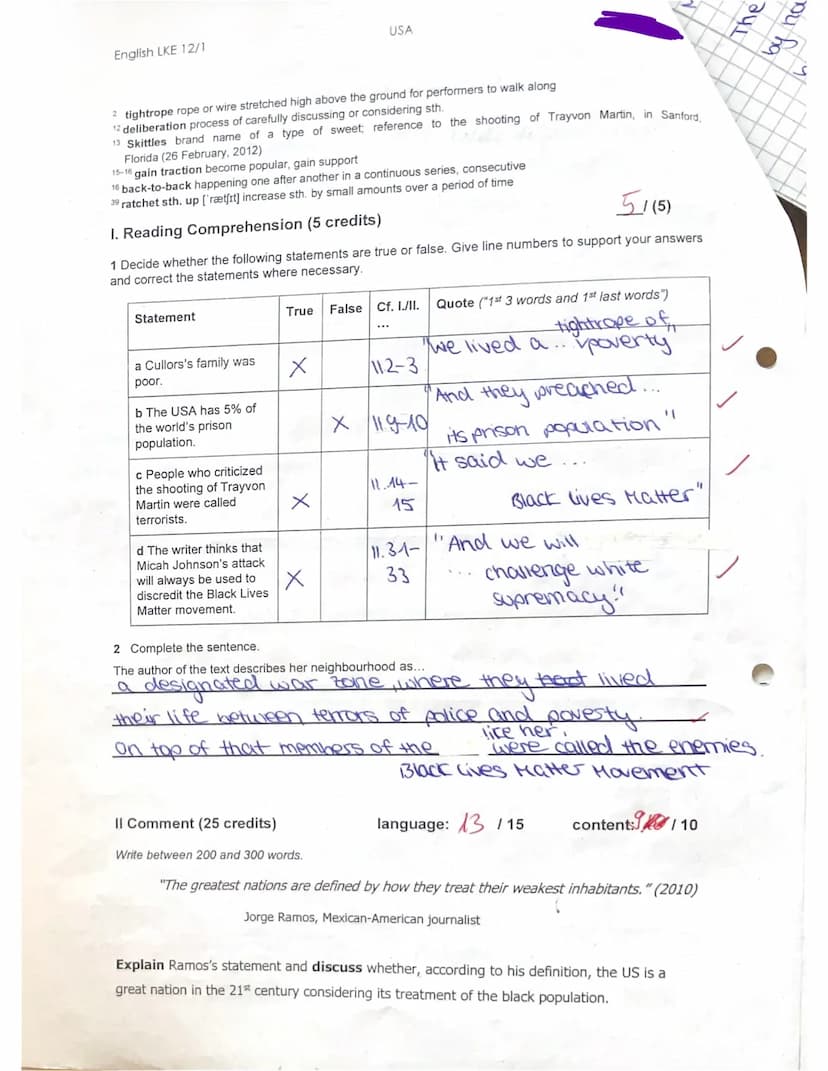 USA
English LKE 12/1
The
by ha
2 tightrope rope or wire stretched high above the ground for performers to walk along
12 deliberation process of carefully discussing or considering sth.
13 Skittles brand name of a type of sweet; reference to the shooting of Trayvon Martin, in Sanford,
Florida (26 February, 2012)
15-16 gain traction become popular, gain support
16 back-to-back happening one after another in a continuous series, consecutive
39 ratchet sth. up [ˈrætʃɪt] increase sth. by small amounts over a period of time
I. Reading Comprehension (5 credits)
5 / (5)
1 Decide whether the following statements are true or false. Give line numbers to support your answers
and correct the statements where necessary.
Statement
True
False
Cf. l./ll.
...
Quote ("1st 3 words and 1st last words")
a Cullors's family was
poor.
X
ll 2-3
tightrope of
"We lived a ... poverty"
b The USA has 5% of
the world's prison
population.
X
ll 9-10
"And they preached...
its prison population"
c People who criticized
the shooting of Trayvon
Martin were called
terrorists.
X
ll.14-
15
"It said we ...
Black Lives Matter"
d The writer thinks that
Micah Johnson's attack
will always be used to
discredit the Black Lives
Matter movement.
X
ll.31-
33
"And we will
... challenge white
supremacy"
2 Complete the sentence.
The author of the text describes her neighbourhood as...
a designated war zone, where they lived
their life between terrors of police and povesty.
lice her,
On top of that members of the were called the enemies.
Black Lives Matter Movement
II Comment (25 credits)
language: 13 / 15
content: 9 / 10
Write between 200 and 300 words.
"The greatest nations are defined by how they treat their weakest inhabitants." (2010)
Jorge Ramos, Mexican-American journalist
Explain Ramos's statement and discuss whether, according to his definition, the US is a
great nation in the 21st century considering its treatment of the black population.